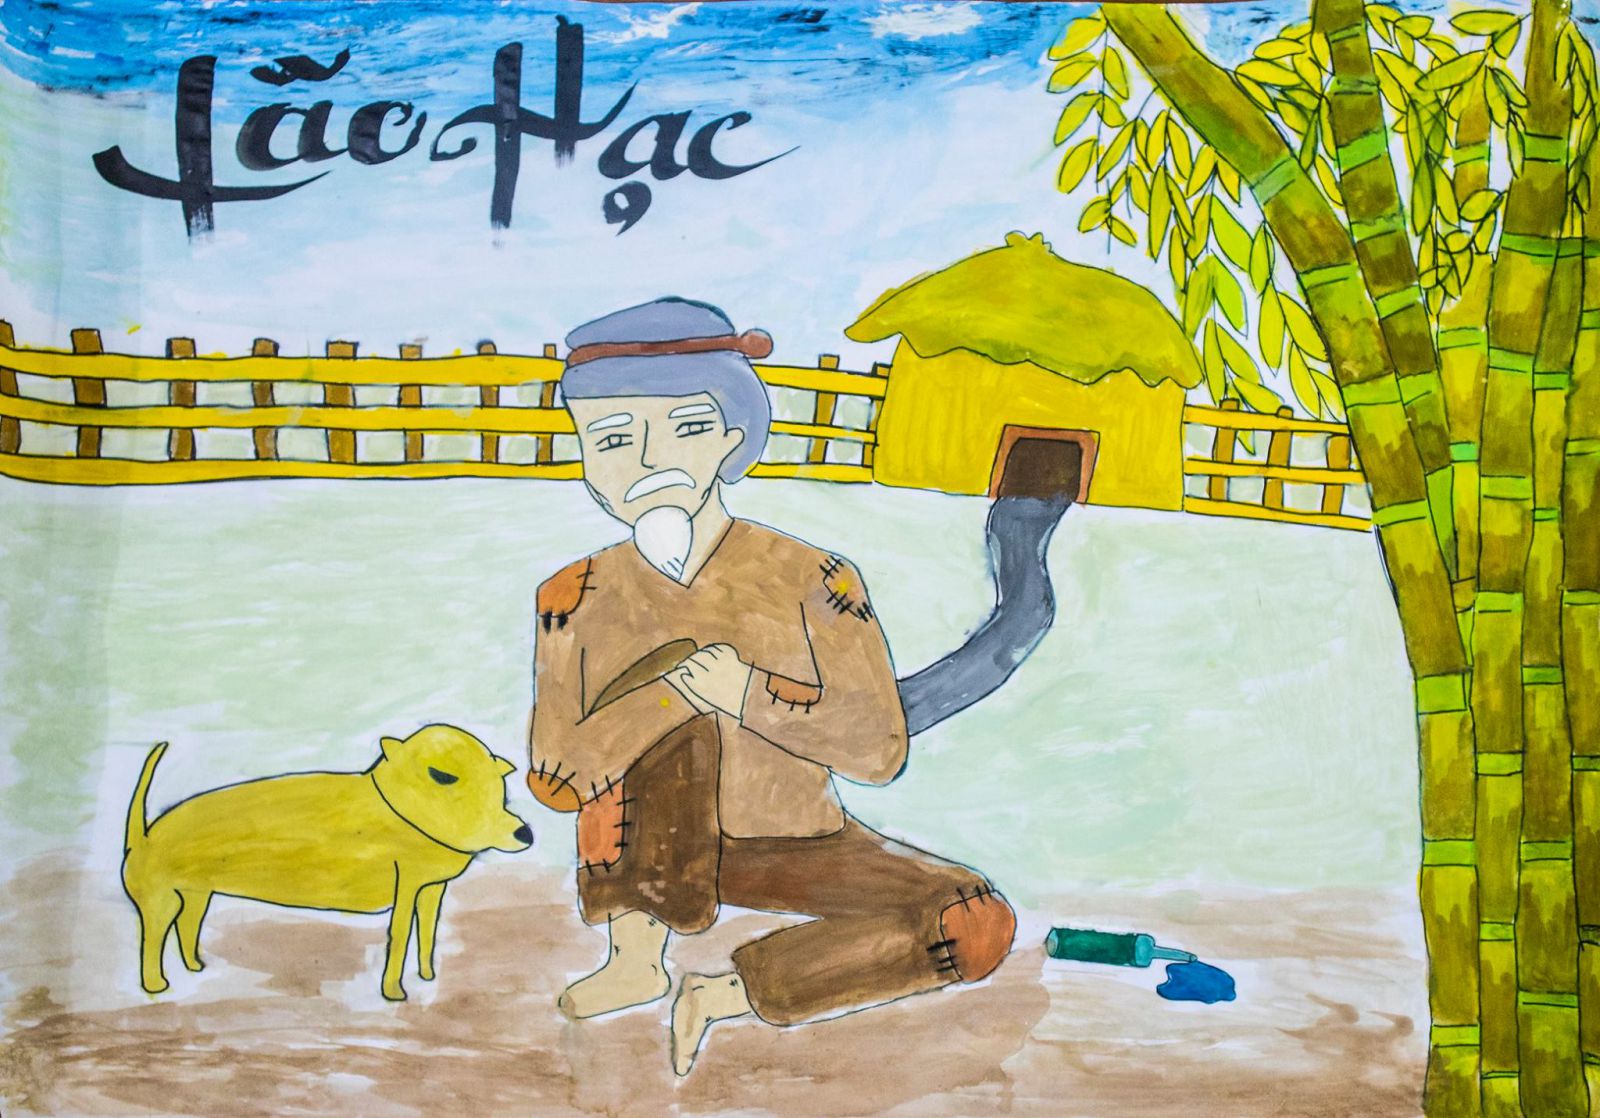 Lão Hạc